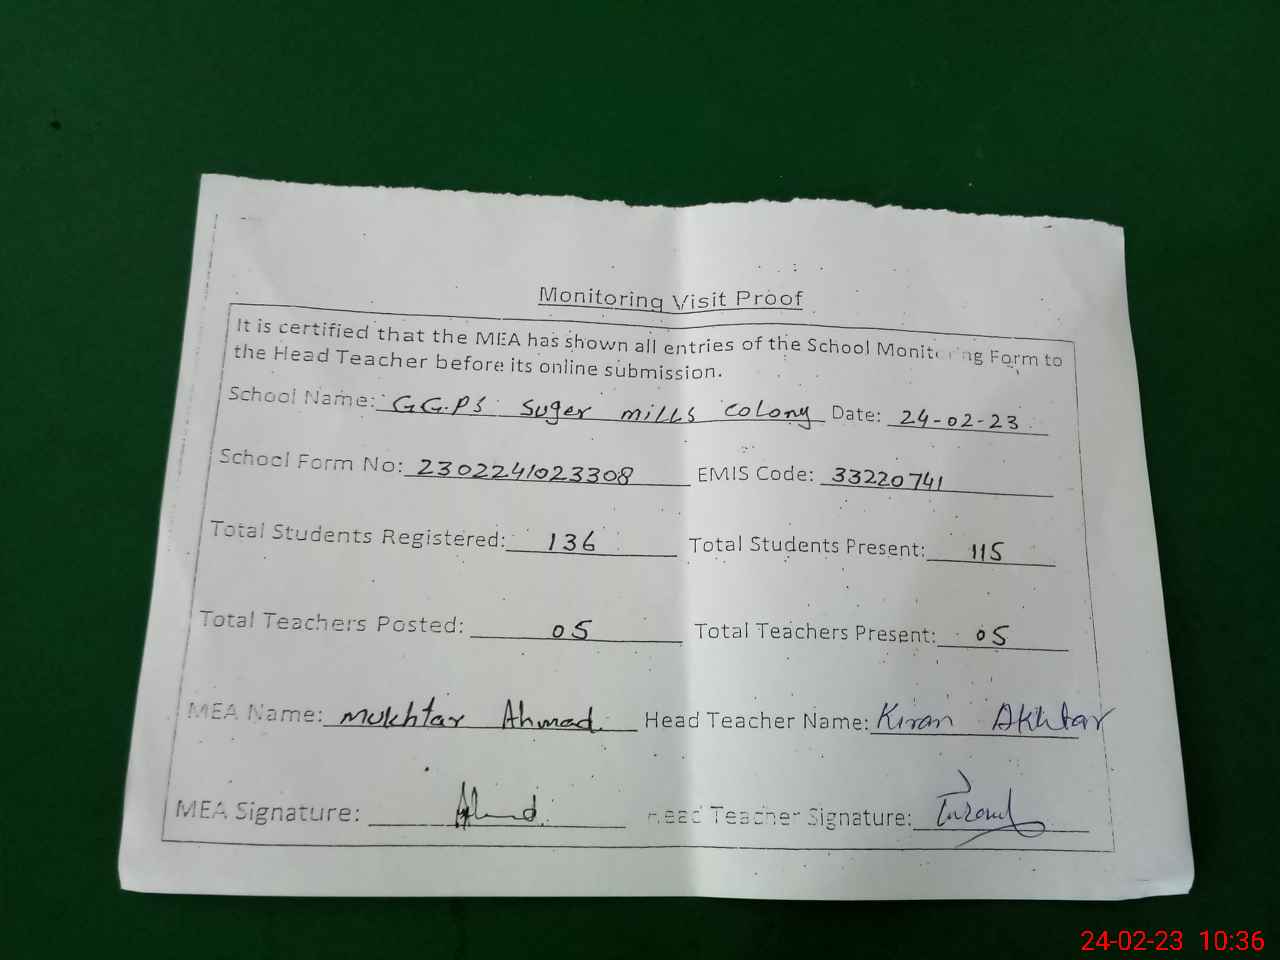 Monitoring Visit Proof
It is certified that the MEA has shown all entries of the School Monitoring Form to
the Head Teacher before its online submission.
School Name: G.G.P.S Suger mills colony Date: 24-02-23
School Form No: 2302241023308 EMIS Code: 33220741
Total Students Registered: 136 Total Students Present: 115
Total Teachers Posted: 05 Total Teachers Present: 05
MEA Name: Mukhtar Ahmad Head Teacher Name: Kiran Akhtar
MEA Signature: Head Teacher Signature:
24-02-23 10:36